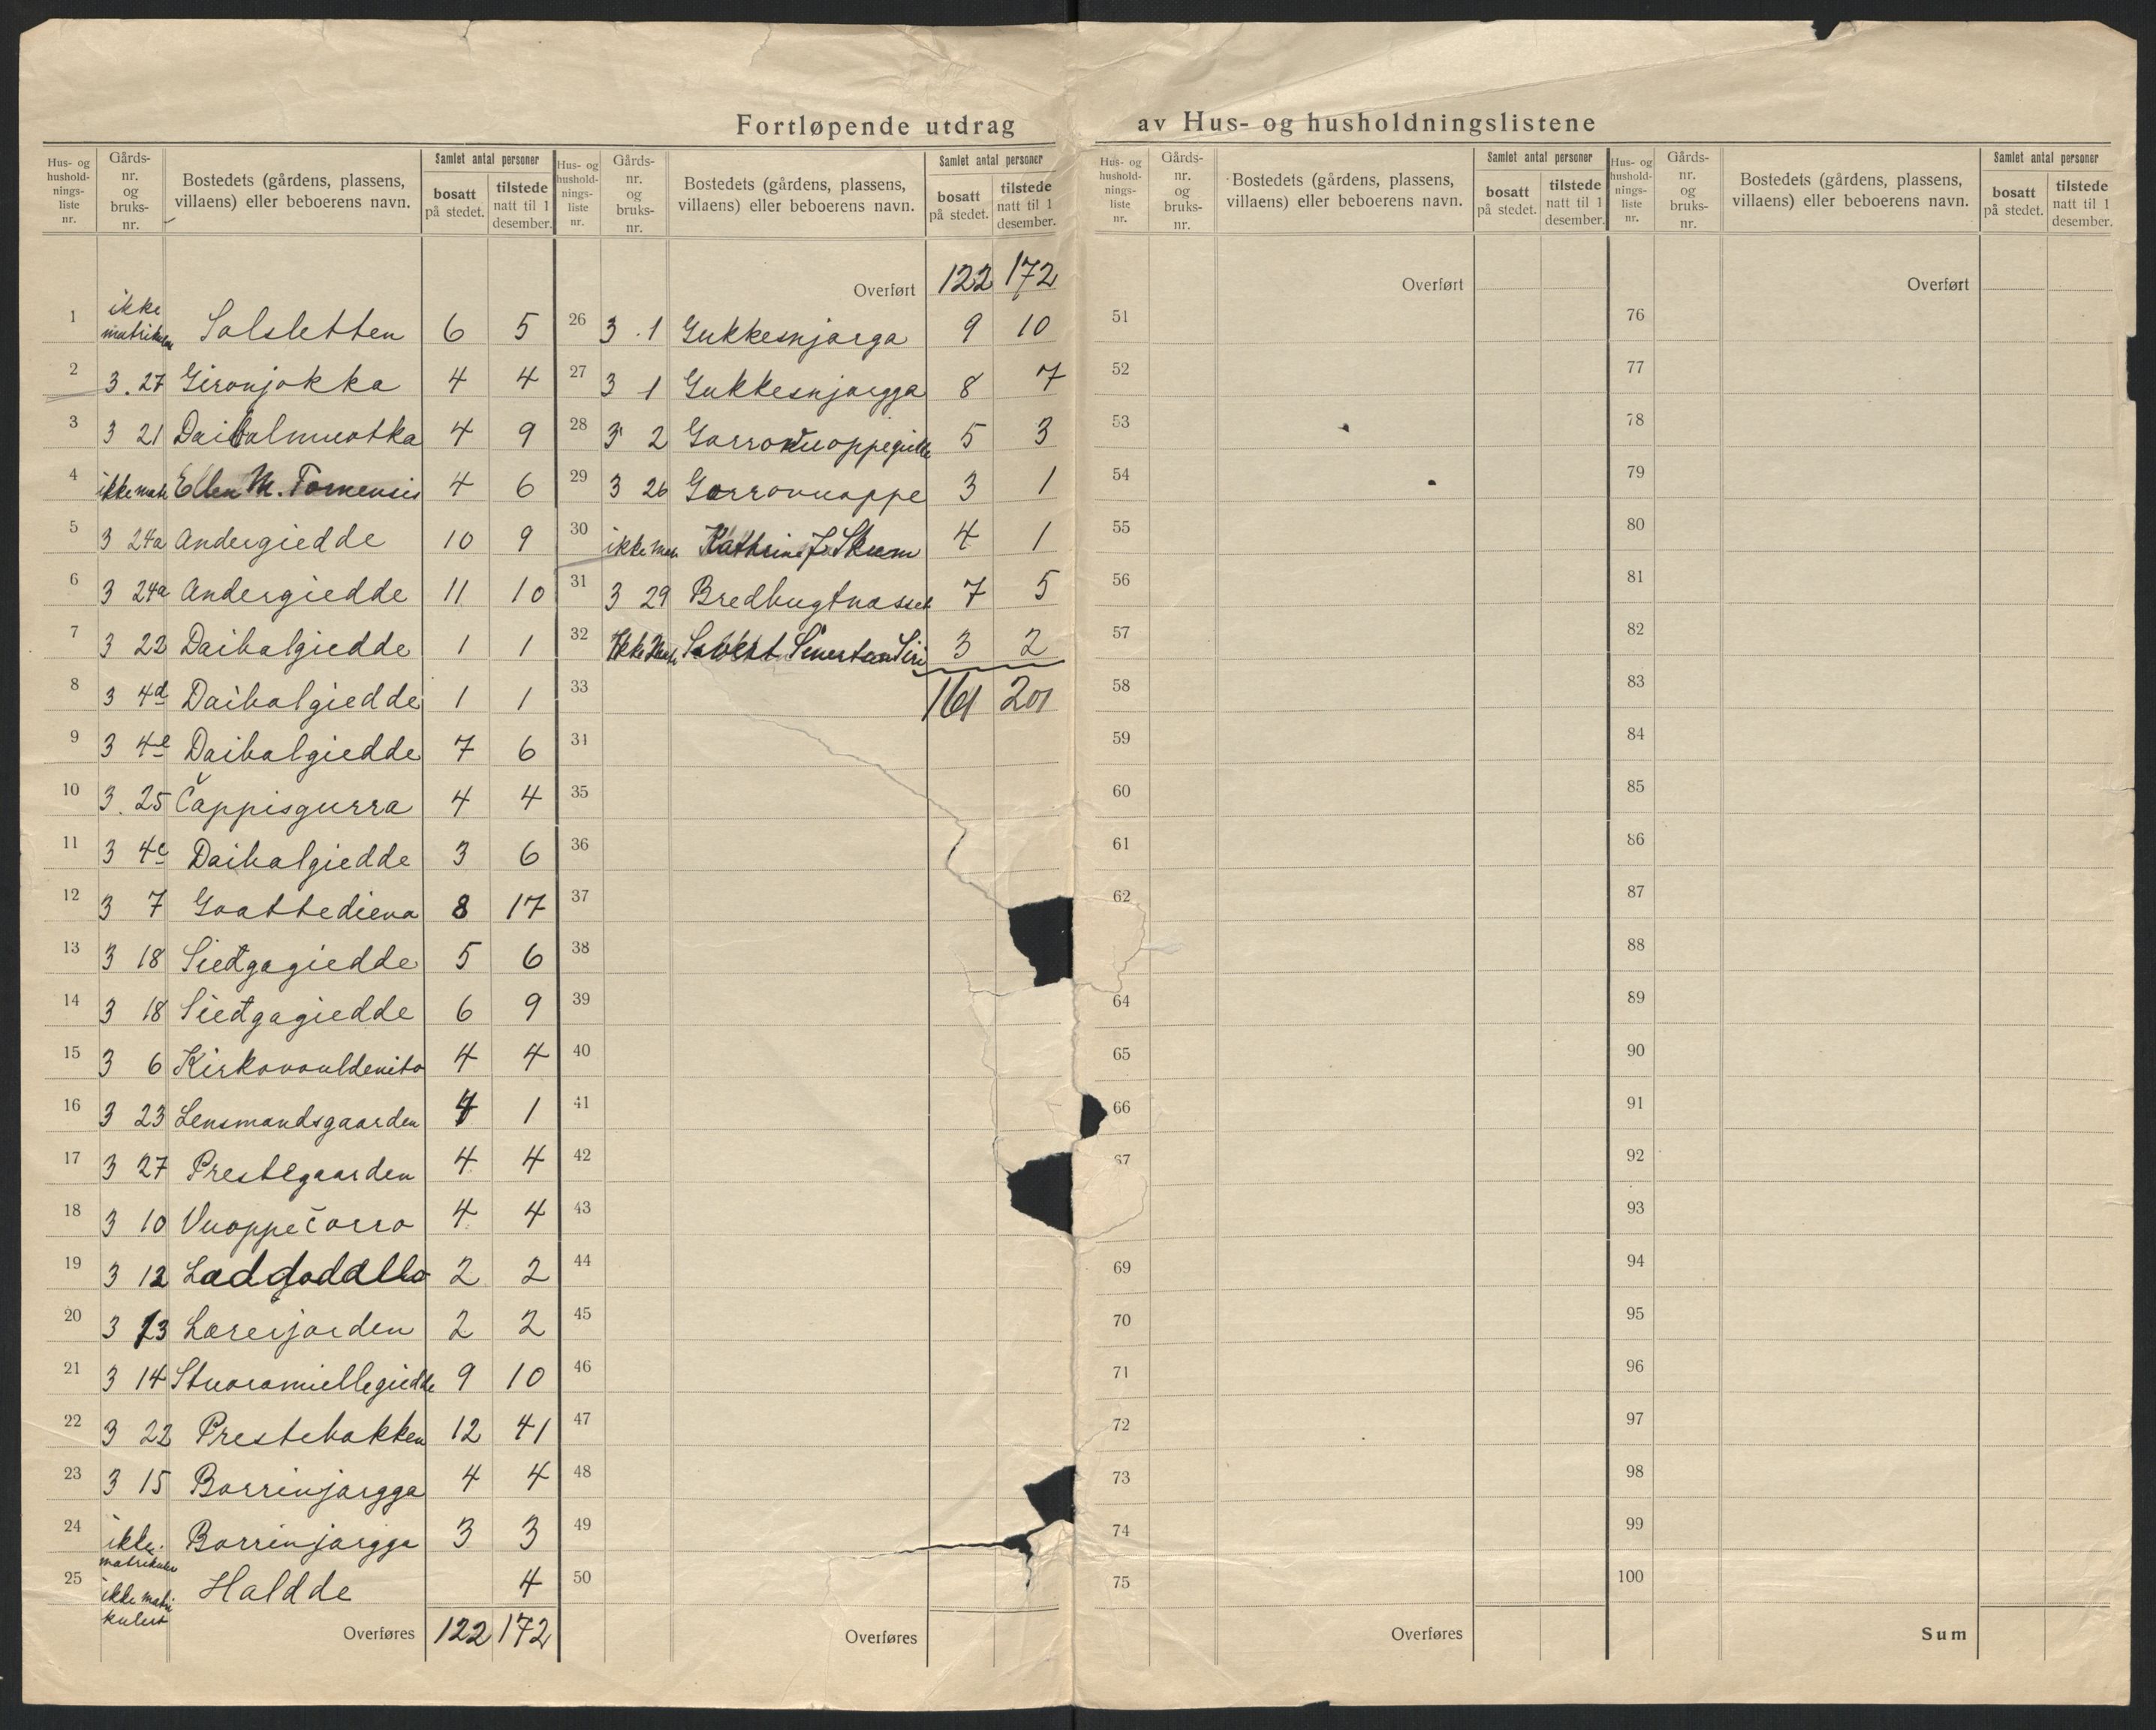 Fortløpende utdrag av Hus- og husholdningslistene
Hus- og hushold-nings-liste nr. Gårds-nr. og bruks-nr. Bostedets (gårdens, plassens, villaens) eller beboerens navn. Samlet antal personer bosatt på stedet. tilstede natt til 1 desember.
1 ikke Solsletten 6 5
2 3. 27 Gironjokka 4 4
3 3 21 Daibalmuotka 4 9
4 ikke matr Ellen M. Fornensis 4 6
5 3 24a Andergiedde 10 9
6 3 24a Andergiedde 11 10
7 3 22 Daibalgiedde 1 1
8 3 4d Daibalgiedde 1 1
9 3 4e Daibalgiedde 7 6
10 3. 25 Čappisgurra 4 4
11 3 4c Daibalgiedde 3 6
12 3 7 Goattediena 8 17
13 3 18 Sieđgagiedde 5 6
14 3 18 Sieđgagiedde 6 9
15 3 6 4 4
16 3 23 Lensmandsgaarden 1
17 3 27 Prestegaarden 4 4
18 3 10 Vuoppečorro 4 4
19 3 12 2 2
20 3 13 Lærerjorden 2 2
21 3 14 Stuoramiellegiedde 9 10
22 3 22 Prestebakken 12 41
23 3 15 Borrinjargga 4 4
24 ikke matrikulert Borrinjargga 3 3
25 ikke matrikulert Haldde 4
Overføres 122 172
Hus- og hushold-nings-liste nr. Gårds-nr. og bruks-nr. Bostedets (gårdens, plassens, villaens) eller beboerens navn. Samlet antal personer bosatt på stedet. tilstede natt til 1 desember.
Overført 122 172
26 3. 1 Gukkesnjarga 9 10
27 3 1 Gukkesnjargga 8 7
28 3 2 5 3
29 3 26 Gorrovuoppe 3 1
30 ikke matr Kathrine J. Skum 4 1
31 3 29 Bredbugtnasset 7 5
32 Ikke Matr 3 2
33 161 201
34
35
36
37
38
39
40
41
42
43
44
45
46
47
48
49
50
Overføres
Hus- og hushold-nings-liste nr. Gårds-nr. og bruks-nr. Bostedets (gårdens, plassens, villaens) eller beboerens navn. Samlet antal personer bosatt på stedet. tilstede natt til 1 desember.
Overført
51
52
53
54
55
56
57
58
59
60
61
62
64
65
66
67
69
70
71
72
73
74
75
Overføres
Hus- og hushold-nings-liste nr. Gårds-nr. og bruks-nr. Bostedets (gårdens, plassens, villaens) eller beboerens navn. Samlet antal personer bosatt på stedet. tilstede natt til 1 desember.
Overført
76
77
78
79
80
81
82
83
84
85
86
87
88
89
90
91
92
93
94
95
96
97
98
99
100
Sum